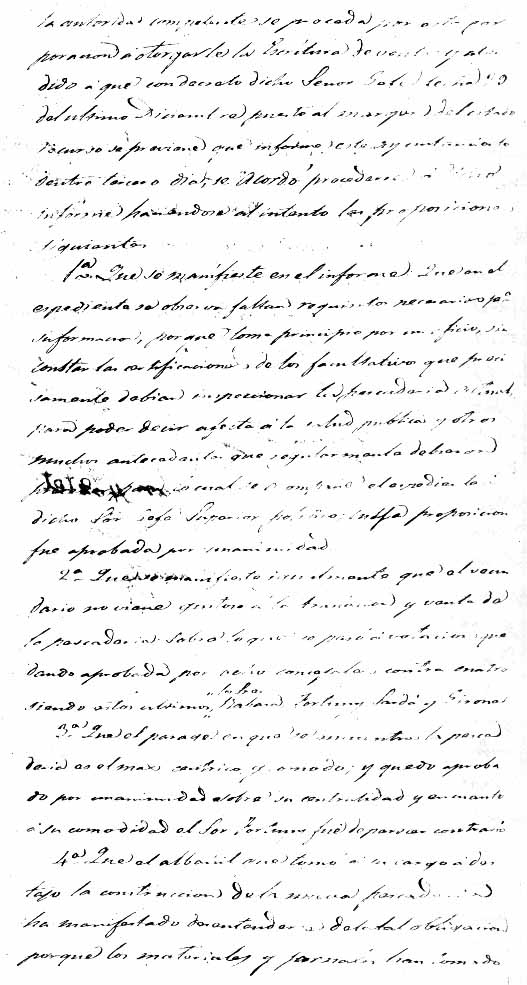 la autoridad competente se proceda por esta cor
poracion á otorgarle la Escritura de venta y ate
dido á que con decreto dicho Señor Gefe fecha 29
del ultimo Diciembre puesto al margen del citado
recurso se previene que informe este Ayuntamiento
dentro tercero dia, se acordó procederse á dicho
informe haciendose al intento las proposiciones
siguientes
1ª Que se manifieste en el informe. Que en el
espediente se observa faltan requisitos necesarios
informacion, porque toma principio por un oficio, sin
constar las certificaciones de los facultativos que preci
samente debian inspeccionar la pescaderia actual
para poder decir afecta á la salud publica y otros
muchos antecedentes que regularmente deberan
el espediente
dicho Sor Gefe Superior politico cuya proposicion
fue aprobada por unanimidad
2ª Que se manifieste igualmente que el vecin
dario no viene gustoso á la traslacion y venta de
la pescaderia sobre lo que se pasó á votacion que
dando aprobada por ocho concejales contra cuatro
siendo estos ultimos, los Sres. Balara Fortuny Sardá y Girona
3ª Que el parage en que se encuentra la pesca
deria es el mas centrico y comodo; y quedó aproba
do por unanimidad sobre su centralidad y en cuanto
á su comodidad el Sor Fortuny fué de parecer contrario
4ª Que el albañil que tomó á su cargo á des
tajo la construccion de la nueva pescaderia
ha manifestado desentenderse de tal obligacion
porque los materiales y jornales han tomado